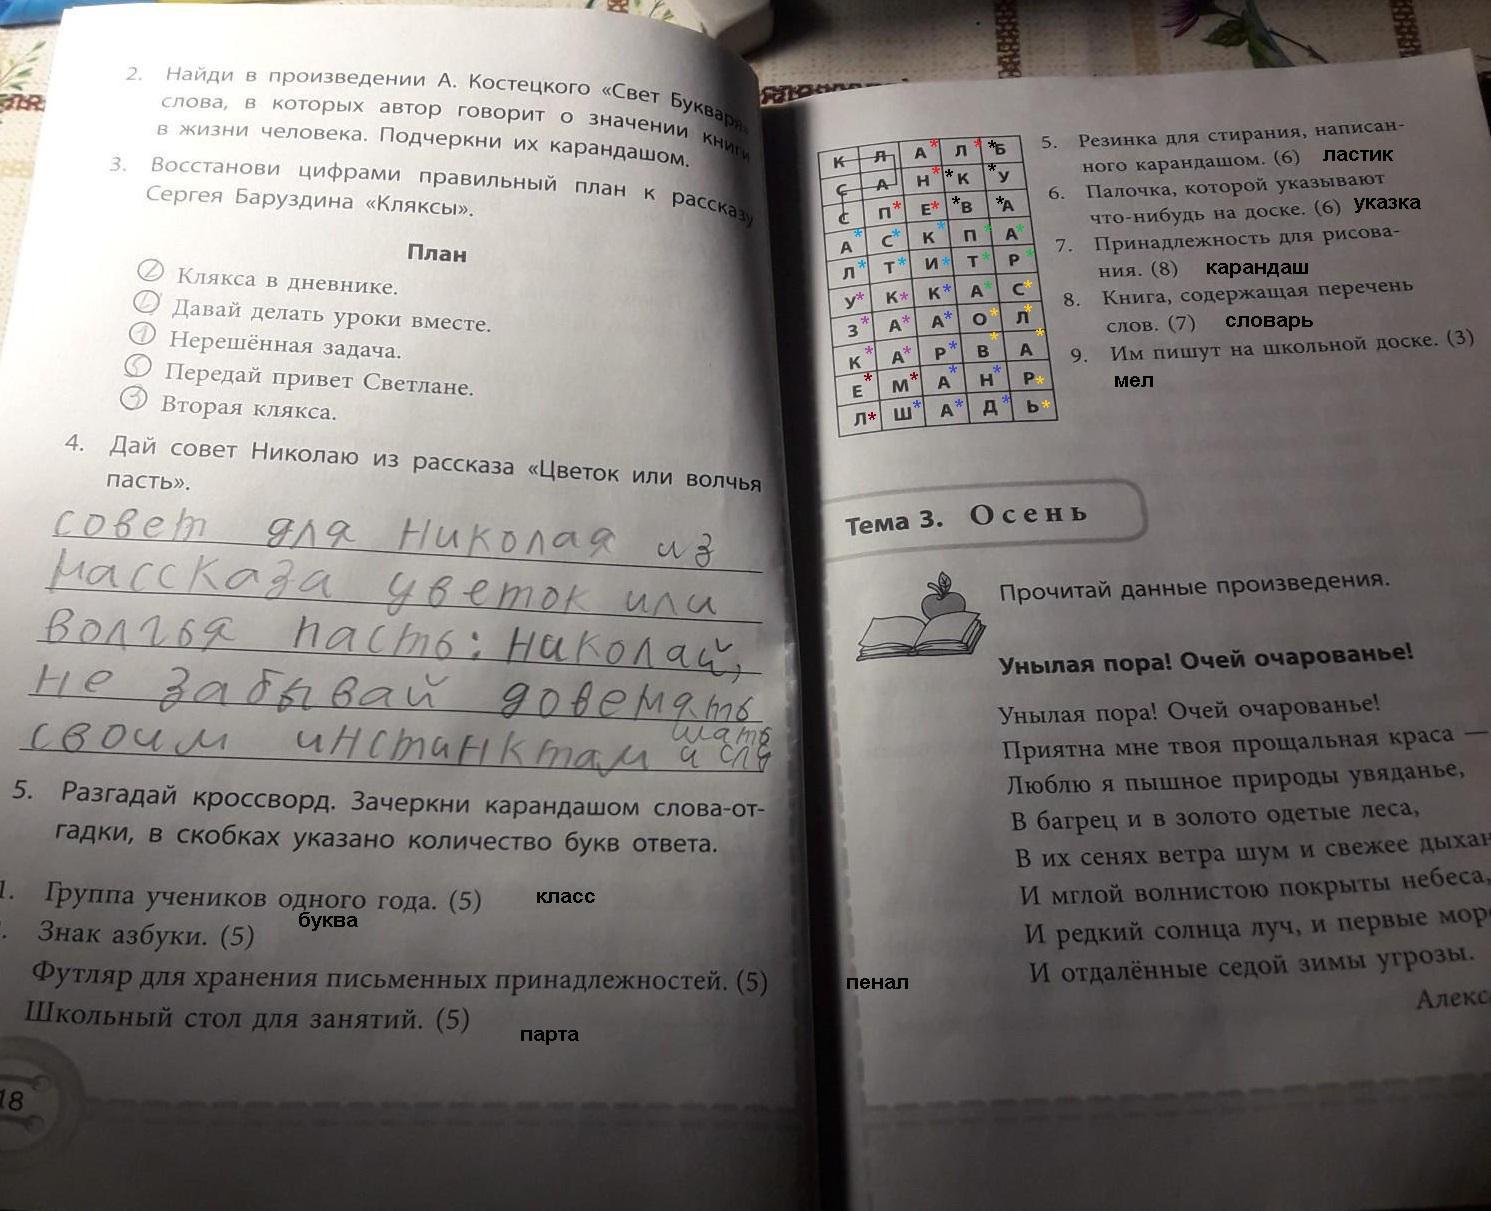 2. Найди в произведении А. Костецкого «Свет Букваря»
слова, в которых автор говорит о значении книги
в жизни человека. Подчеркни их карандашом.
3. Восстанови цифрами правильный план к рассказу
Сергея Баруздина «Кляксы».
План
2 Клякса в дневнике.
Давай делать уроки вместе.
1 Нерешённая задача.
5 Передай привет Светлане.
3 Вторая клякса.
4. Дай совет Николаю из рассказа «Цветок или волчья
пасть».
совет для Николая из
рассказа цветок или
волчья пасть: николай,
не забывай доверять
своим инстинктам и слу
шать
5. Разгадай кроссворд. Зачеркни карандашом слова-от-
гадки, в скобках указано количество букв ответа.
1. Группа учеников одного года. (5) класс
Знак азбуки. (5) буква
Футляр для хранения письменных принадлежностей. (5) пенал
Школьный стол для занятий. (5) парта
18
К Л А* Л* *Б
С А Н* *К *У
С П* Е* *В *А
А* С* К* П* А*
Л* Т* И* Т* Р*
У* К* К* А* С*
З* А* А* О* Л*
К* А* Р* В* А*
Е* М* А* Н* Р*
Л* Ш* А* Д* Ь*
5. Резинка для стирания, написан-
ного карандашом. (6) ластик
6. Палочка, которой указывают
что-нибудь на доске. (6) указка
7. Принадлежность для рисова-
ния. (8) карандаш
8. Книга, содержащая перечень
слов. (7) словарь
9. Им пишут на школьной доске. (3)
мел
Тема 3. Осень
Прочитай данные произведения.
Унылая пора! Очей очарованье!
Унылая пора! Очей очарованье!
Приятна мне твоя прощальная краса —
Люблю я пышное природы увяданье,
В багрец и в золото одетые леса,
В их сенях ветра шум и свежее дыхан
И мглой волнистою покрыты небеса,
И редкий солнца луч, и первые мор
И отдалённые седой зимы угрозы.
Алекс